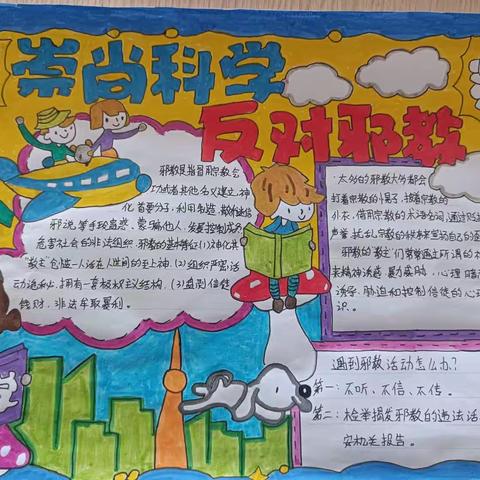 崇尚科学
反对邪教
邪教是指冒用宗教、气
功或者其他名义建立,神
化首要分子,利用制造、散布迷信
邪说等手段蛊惑、蒙骗他人,发展控制成员,
危害社会的非法组织。邪教的基本特征(1)神化其
"教主",包装一人活在人世间的至上神。(2)组织严密活
动诡秘,拥有一套极权主义结构。(3)盘剥信徒
钱财,非法牟取暴利。
太多的邪教大多都会
打着宗教的幌子,披着宗教的
外衣,借用宗教的术语名词,通过
声誉,扰乱宗教的秩序来宣动自己的
邪教的"教主"们常常通过所谓的
来精神诱惑、暴力威胁、心理暗
诱导、胁迫和控制信徒的心
识。
遇到邪教活动怎么办?
第一:不听、不信、不传。
第二:检举揭发邪教的违法活
安机关报告。